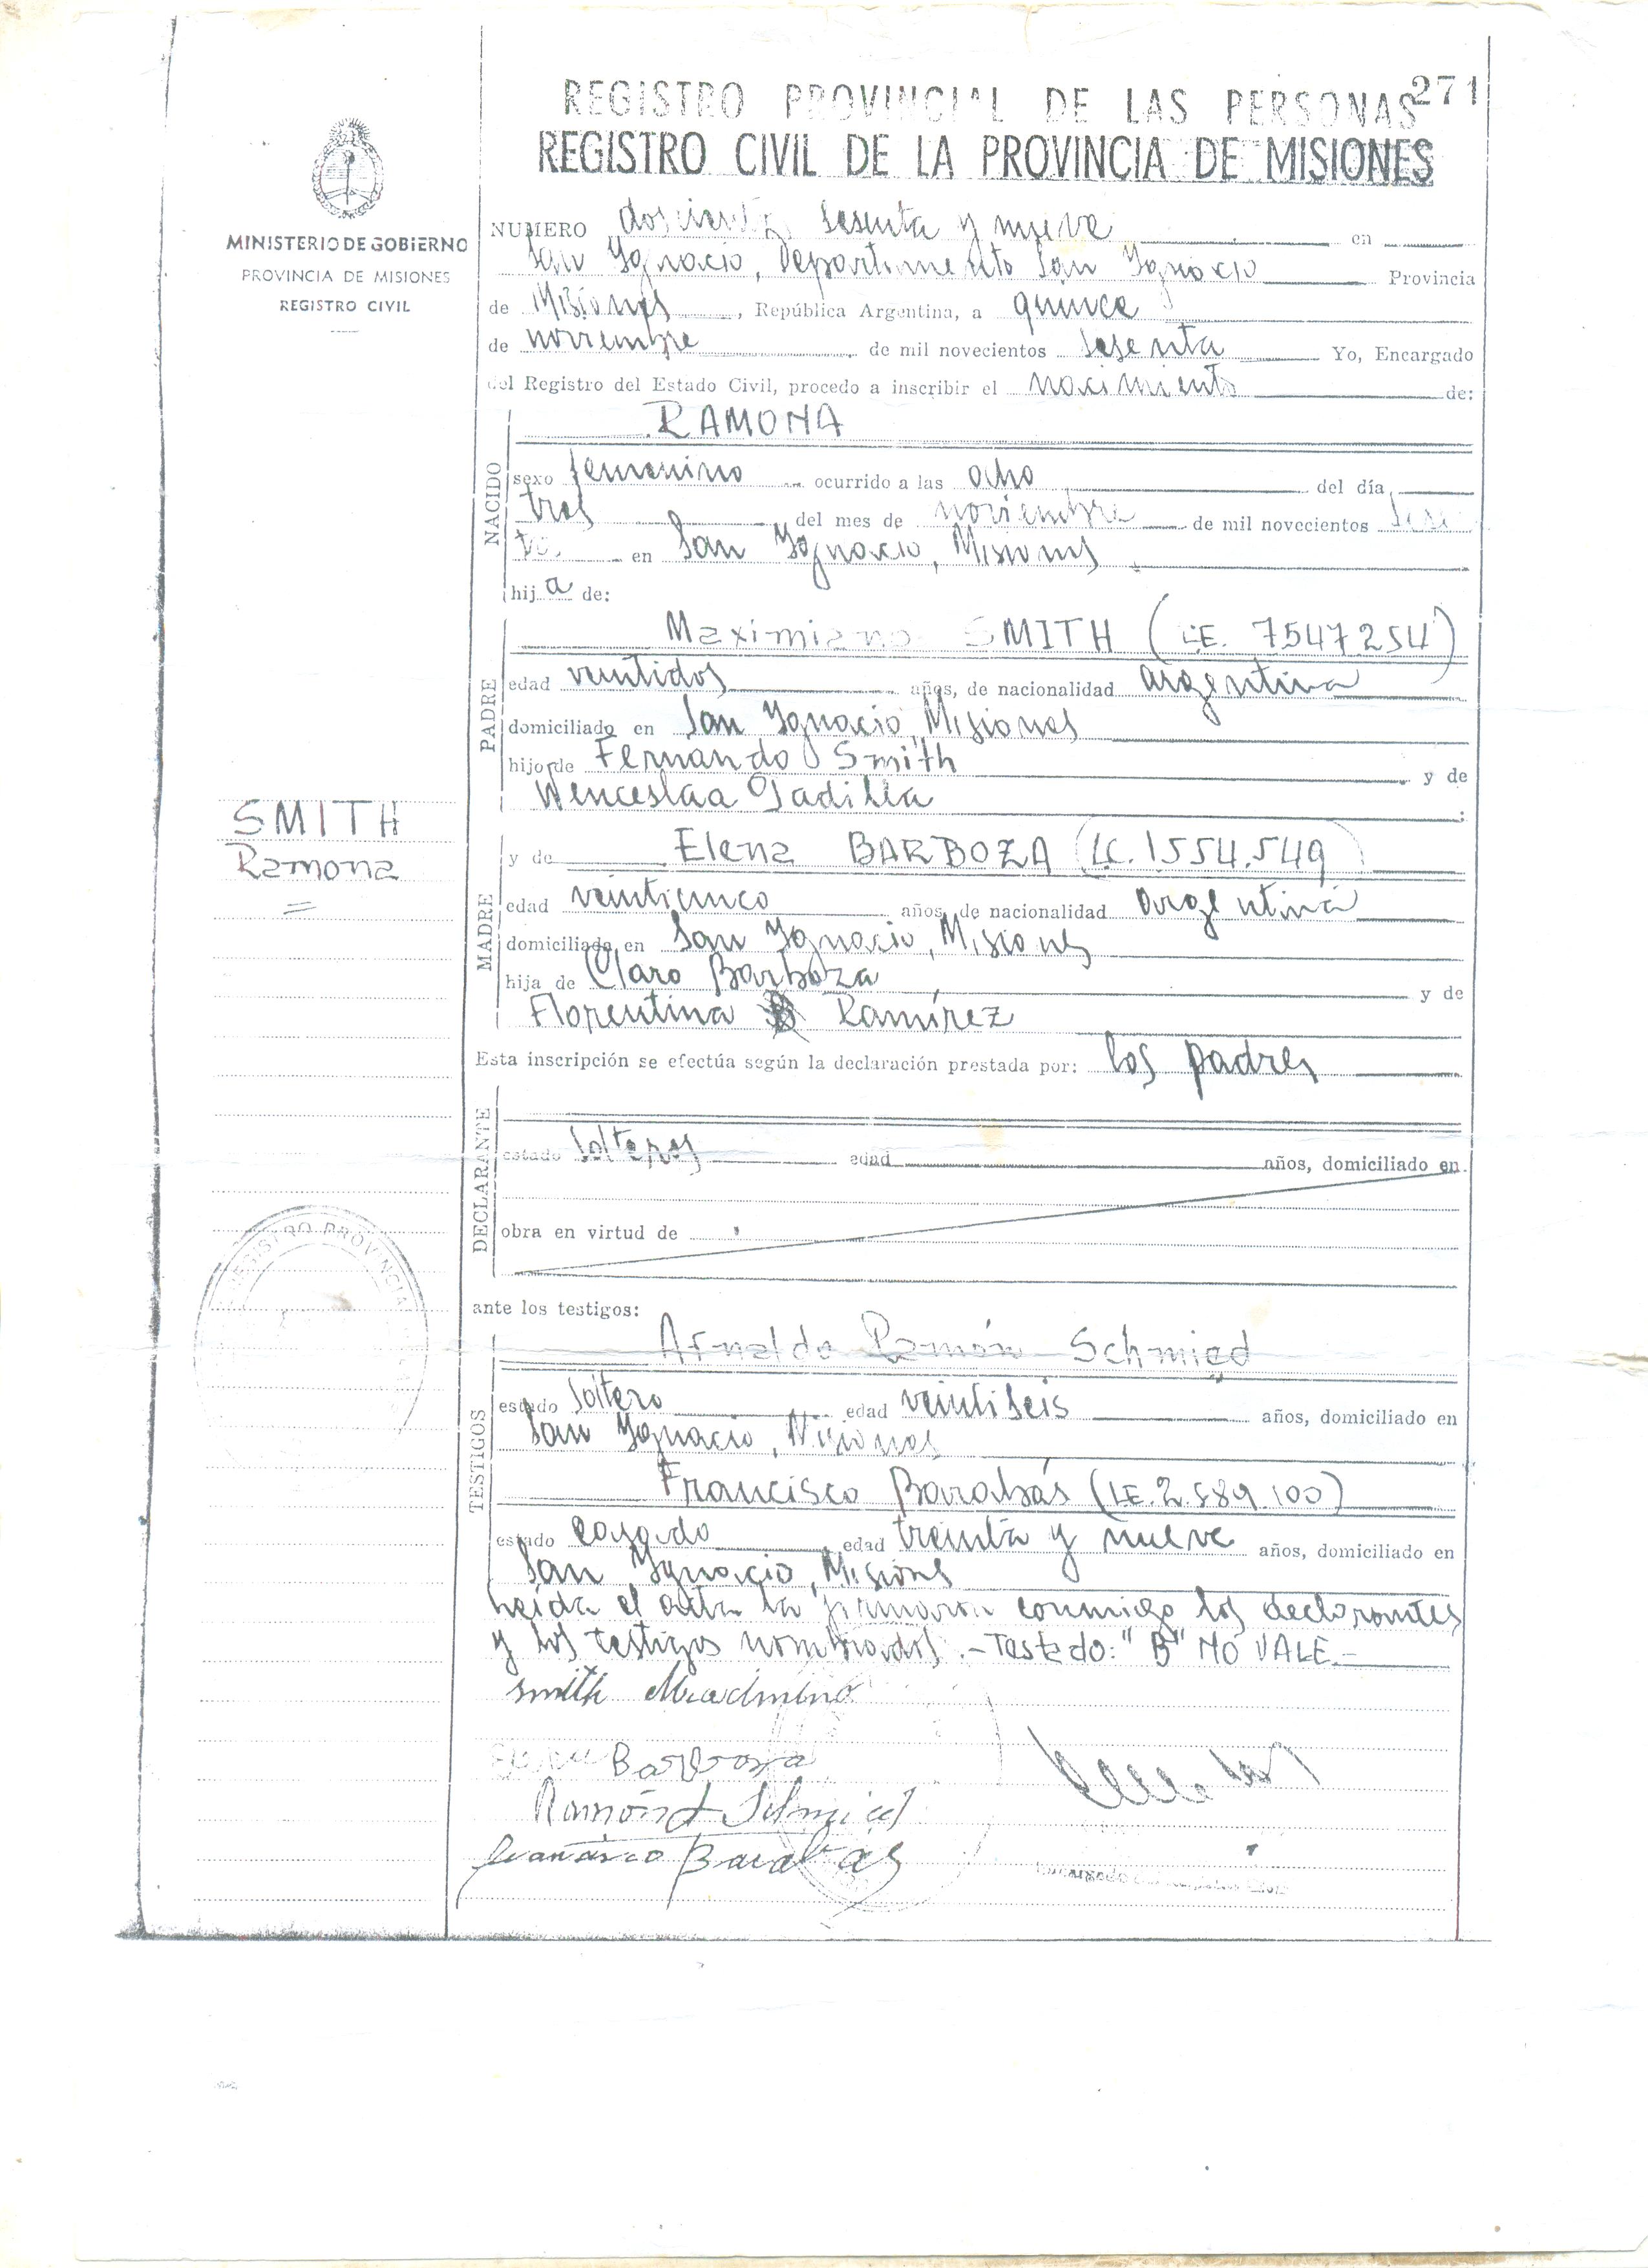 271
REGISTRO PROVINCIAL DE LAS PERSONAS
REGISTRO CIVIL DE LA PROVINCIA DE MISIONES
MINISTERIO DE GOBIERNO
PROVINCIA DE MISIONES
REGISTRO CIVIL
NUMERO doscientos sesenta y nueve en
San Ygnacio, Departamento San Ygnacio Provincia
de Misiones, República Argentina, a quince
de noviembre de mil novecientos sesenta Yo, Encargado
del Registro del Estado Civil, procedo a inscribir el nacimiento de:
NACIDO
RAMONA
sexo femenino ocurrido a las ocho del día
tres del mes de noviembre de mil novecientos sesen
ta en San Ygnacio, Misiones
hija de:
PADRE
Maximiano SMITH (L.E. 7547254)
edad veintidos años, de nacionalidad argentina
domiciliado en San Ygnacio, Misiones
hijo de Fernando Smith y de
Wenceslaa Padilla;
SMITH
Ramona
=
MADRE
y de Elena BARBOZA (LC. 1554.549)
edad veinticinco años, de nacionalidad argentina
domiciliada en San Ygnacio, Misiones
hija de Claro Barboza y de
Florentina B Ramírez
Esta inscripción se efectúa según la declaración prestada por: los padres
DECLARANTE
estado solteros edad años, domiciliado en
obra en virtud de
REGISTRO PROVINCIAL
ante los testigos:
TESTIGOS
Arnaldo Ramón Schmied
estado soltero edad veintiseis años, domiciliado en
San Ygnacio, Misiones
Francisco Barabás (LE. 2.589.100)
estado casado, edad treinta y nueve años, domiciliado en
San Ygnacio, Misiones
Leída el acta la firmaron conmigo los declarantes
y los testigos nombrados.- Testado: "B" NO VALE.-
smith
Barboza
Ramón Schmied
Francisco Barabas
Encargado